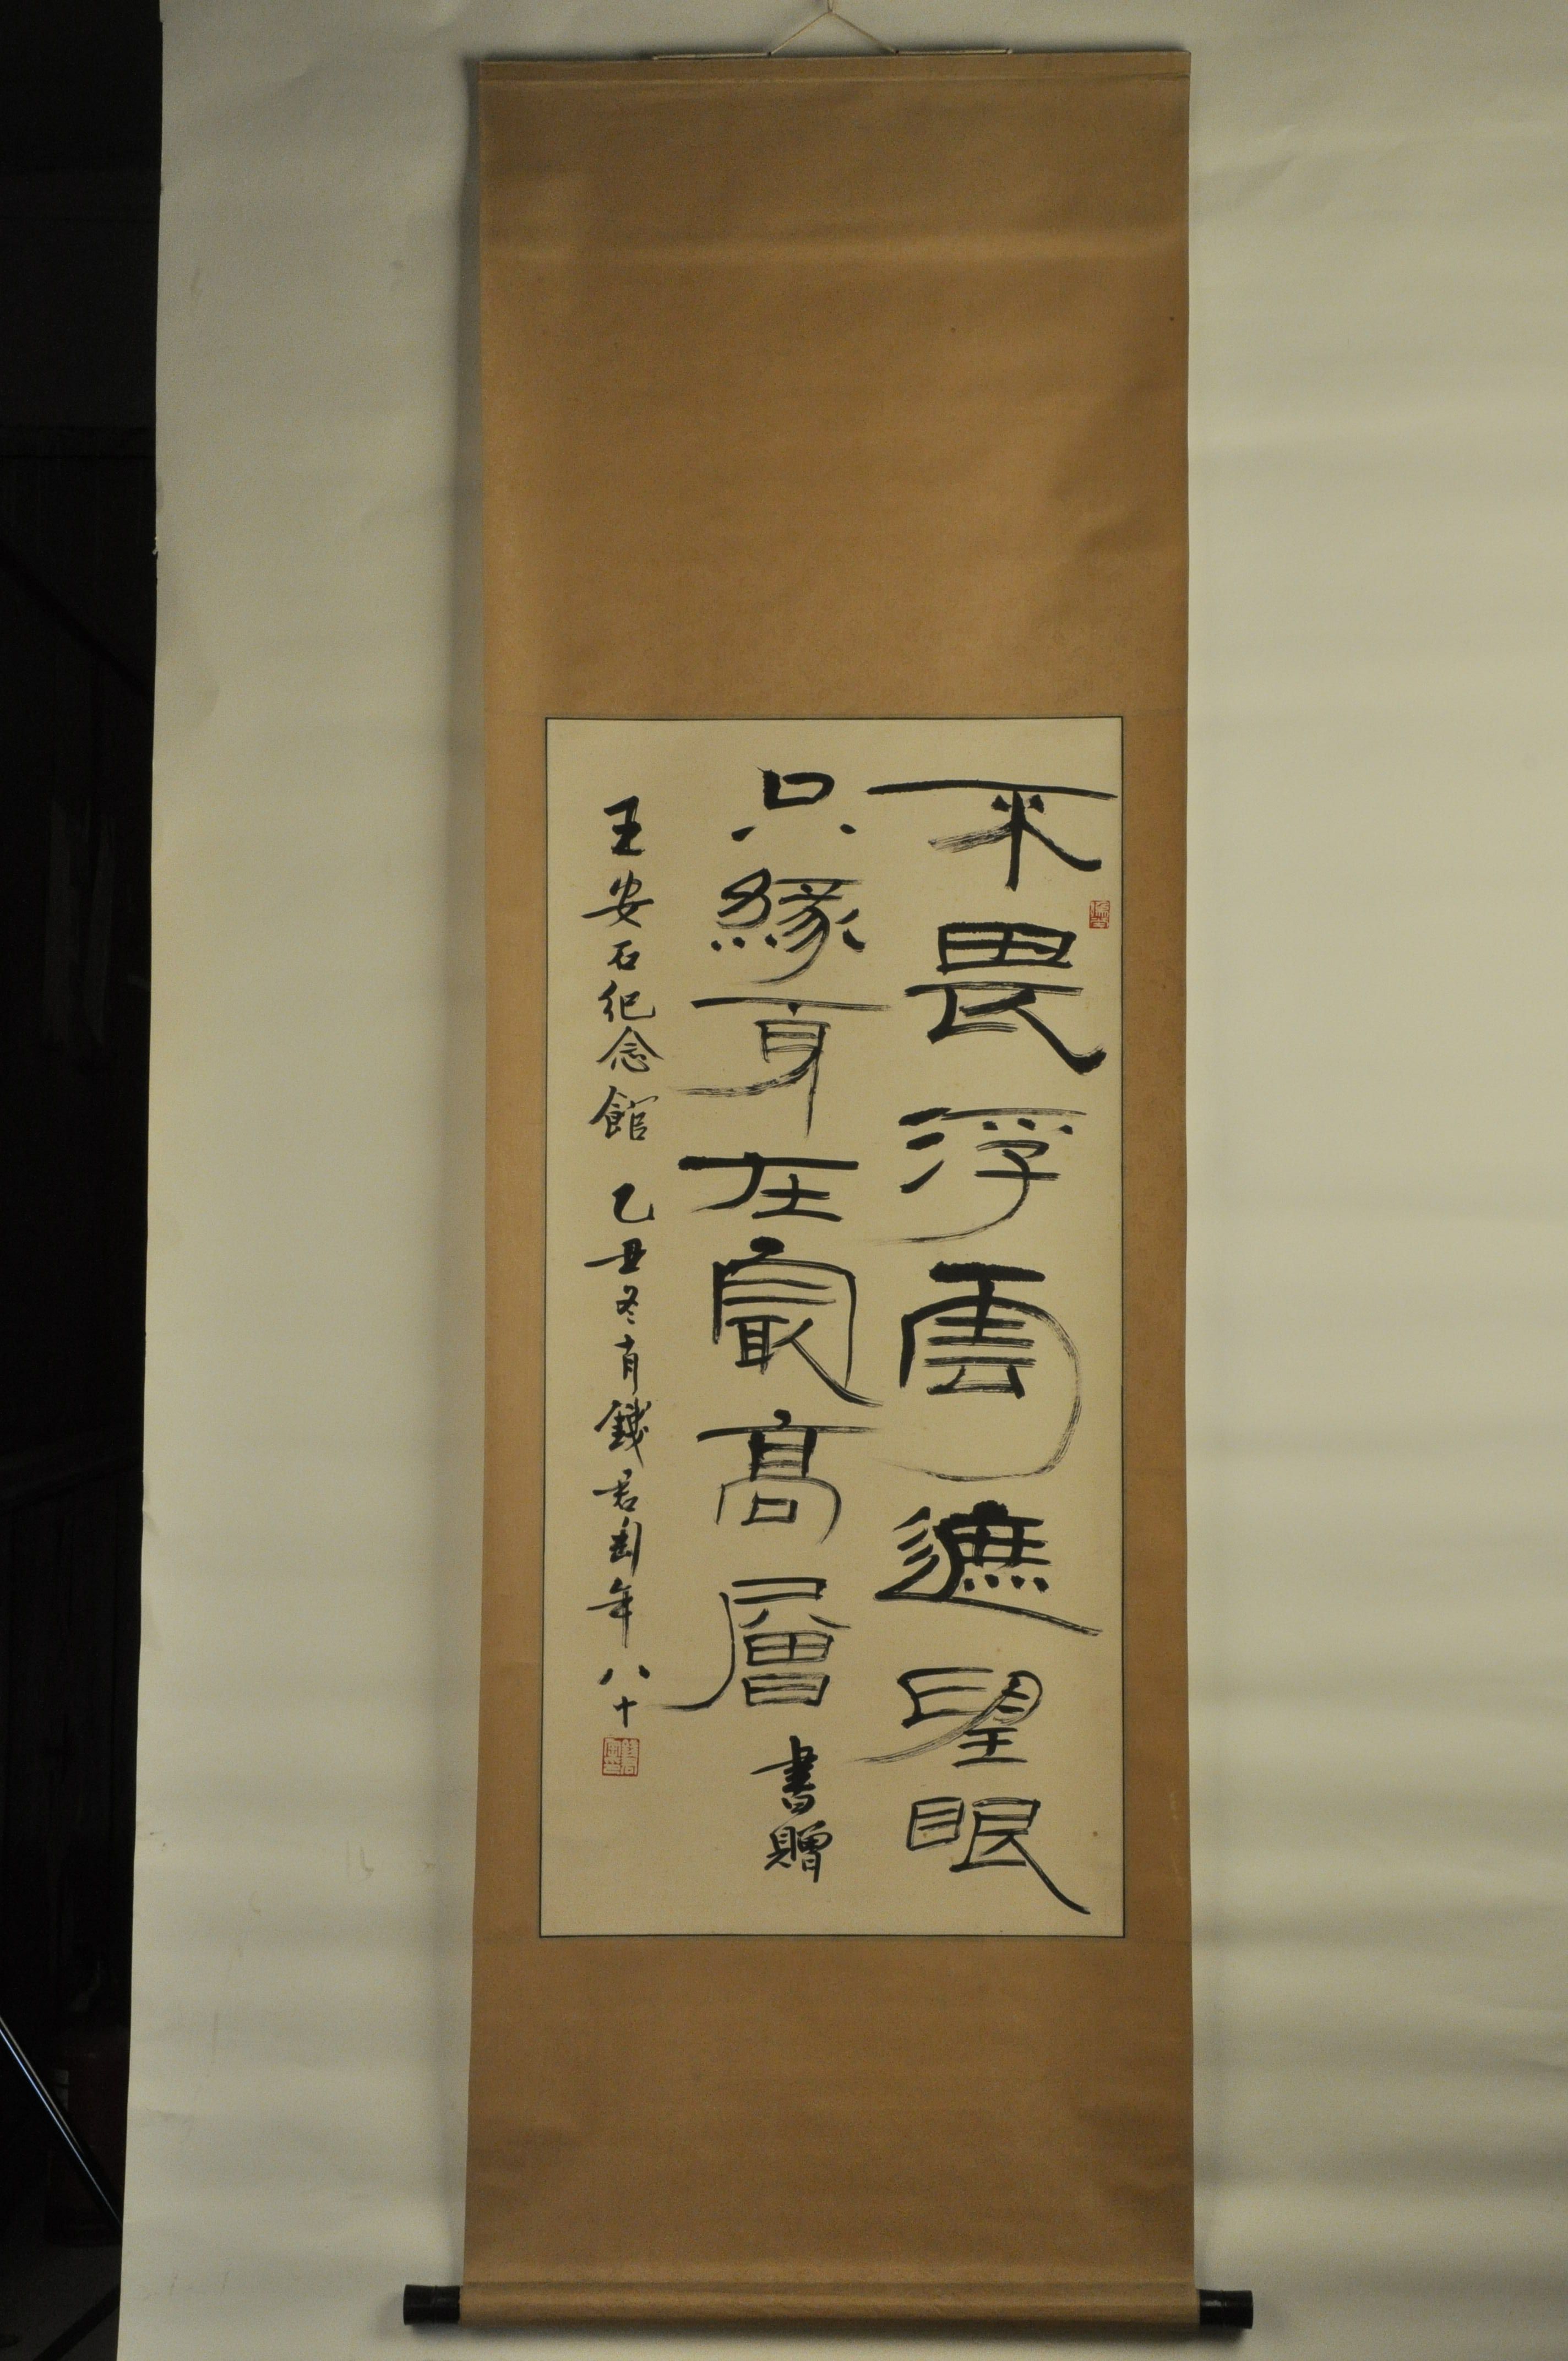 不畏浮雲遮望眼
只緣身在最高層 書贈
王安石紀念館 乙丑冬肖錢君匋年八十